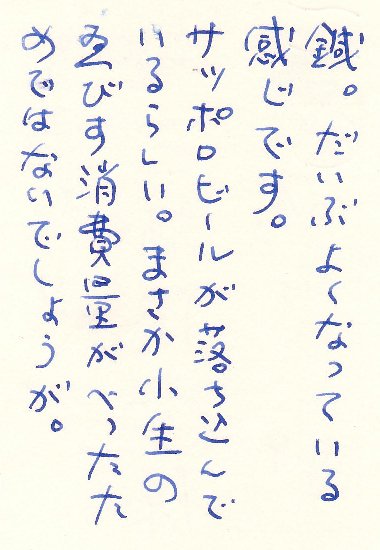 鍼。だいぶよくなっている
感じです。
サッポロビールが落ち込んで
いるらしい。まさか小生の
びす消費量がへったた
めではないでしょうが。